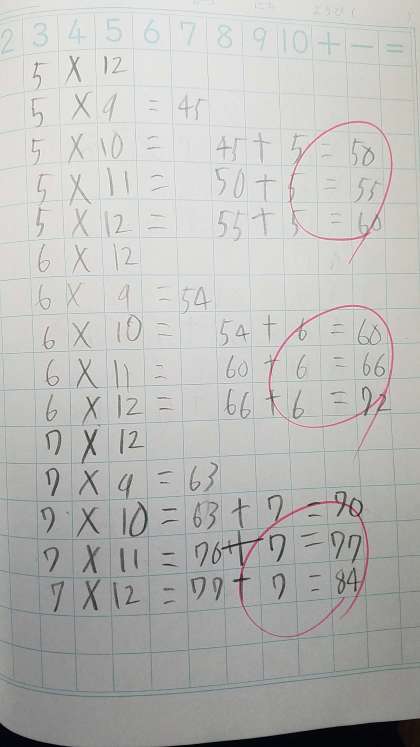 2 3 4 5 6 7 8 9 10 + - =
5 X 12
5 X 9 = 45
5 X 10 = 45 + 5 = 50
5 X 11 = 50 + 5 = 55
5 X 12 = 55 + 5 = 60
6 X 12
6 X 9 = 54
6 X 10 = 54 + 6 = 60
6 X 11 = 60 + 6 = 66
6 X 12 = 66 + 6 = 72
7 X 12
7 X 9 = 63
7 X 10 = 63 + 7 = 70
7 X 11 = 70 + 7 = 77
7 X 12 = 77 + 7 = 84